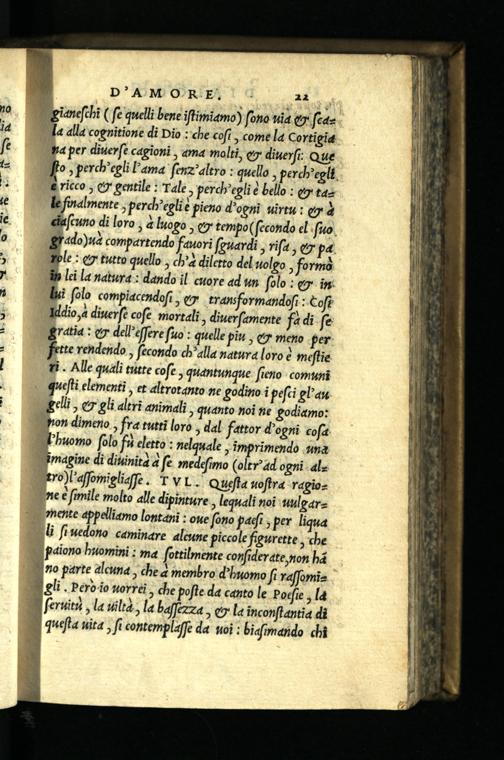 D'AMORE. 22
gianeschi (se quelli bene istimiamo) sono uia & sca=
la alla cognitione di Dio : che cosi, come la Cortigia
na per diuerse cagioni, ama molti, & diuersi: Que
sto, perch'egli l'ama senz'altro : quello, perch'egli
è ricco, & gentile : Tale, perch'egli è bello : & ta=
le finalmente, perch'egli è pieno d'ogni uirtu : & à
ciascuno di loro, à luogo, & tempo (secondo el suo
grado) uà compartendo fauori sguardi, risa, & pa
role : & tutto quello, ch'à diletto del uolgo, formò
in lei la natura : dando il cuore ad un solo : & in
lui solo compiacendosi, & transformandosi : Cosi
Iddio, à diuerse cose mortali, diuersamente fà di se
gratia : & dell'essere suo : quelle piu, & meno per
fette rendendo, secondo ch'alla natura loro è mestie
ri. Alle quali tutte cose, quantunque sieno comuni
questi elementi, et altrotanto ne godino i pesci gl'au
gelli, & gli altri animali, quanto noi ne godiamo:
non dimeno, fra tutti loro, dal fattor d'ogni cosa
l'huomo solo fù eletto : nelquale, imprimendo una
imagine di diuinità à se medesimo (oltr'ad ogni al=
tro) l'assomigliasse. TVL. Questa uostra ragio=
ne è simile molto alle dipinture, lequali noi uulgar=
mente appelliamo lontani : oue sono paesi, per liqua
li si uedono caminare alcune piccole figurette, che
paiono huomini : ma sottilmente considerate, non hā
no parte alcuna, che à membro d'huomo si rassomi=
gli. Però io uorrei, che poste da canto le Poesie, la
seruitù, la uiltà, la bassezza, & la inconstantia di
questa uita, si contemplasse da uoi : biasimando chi